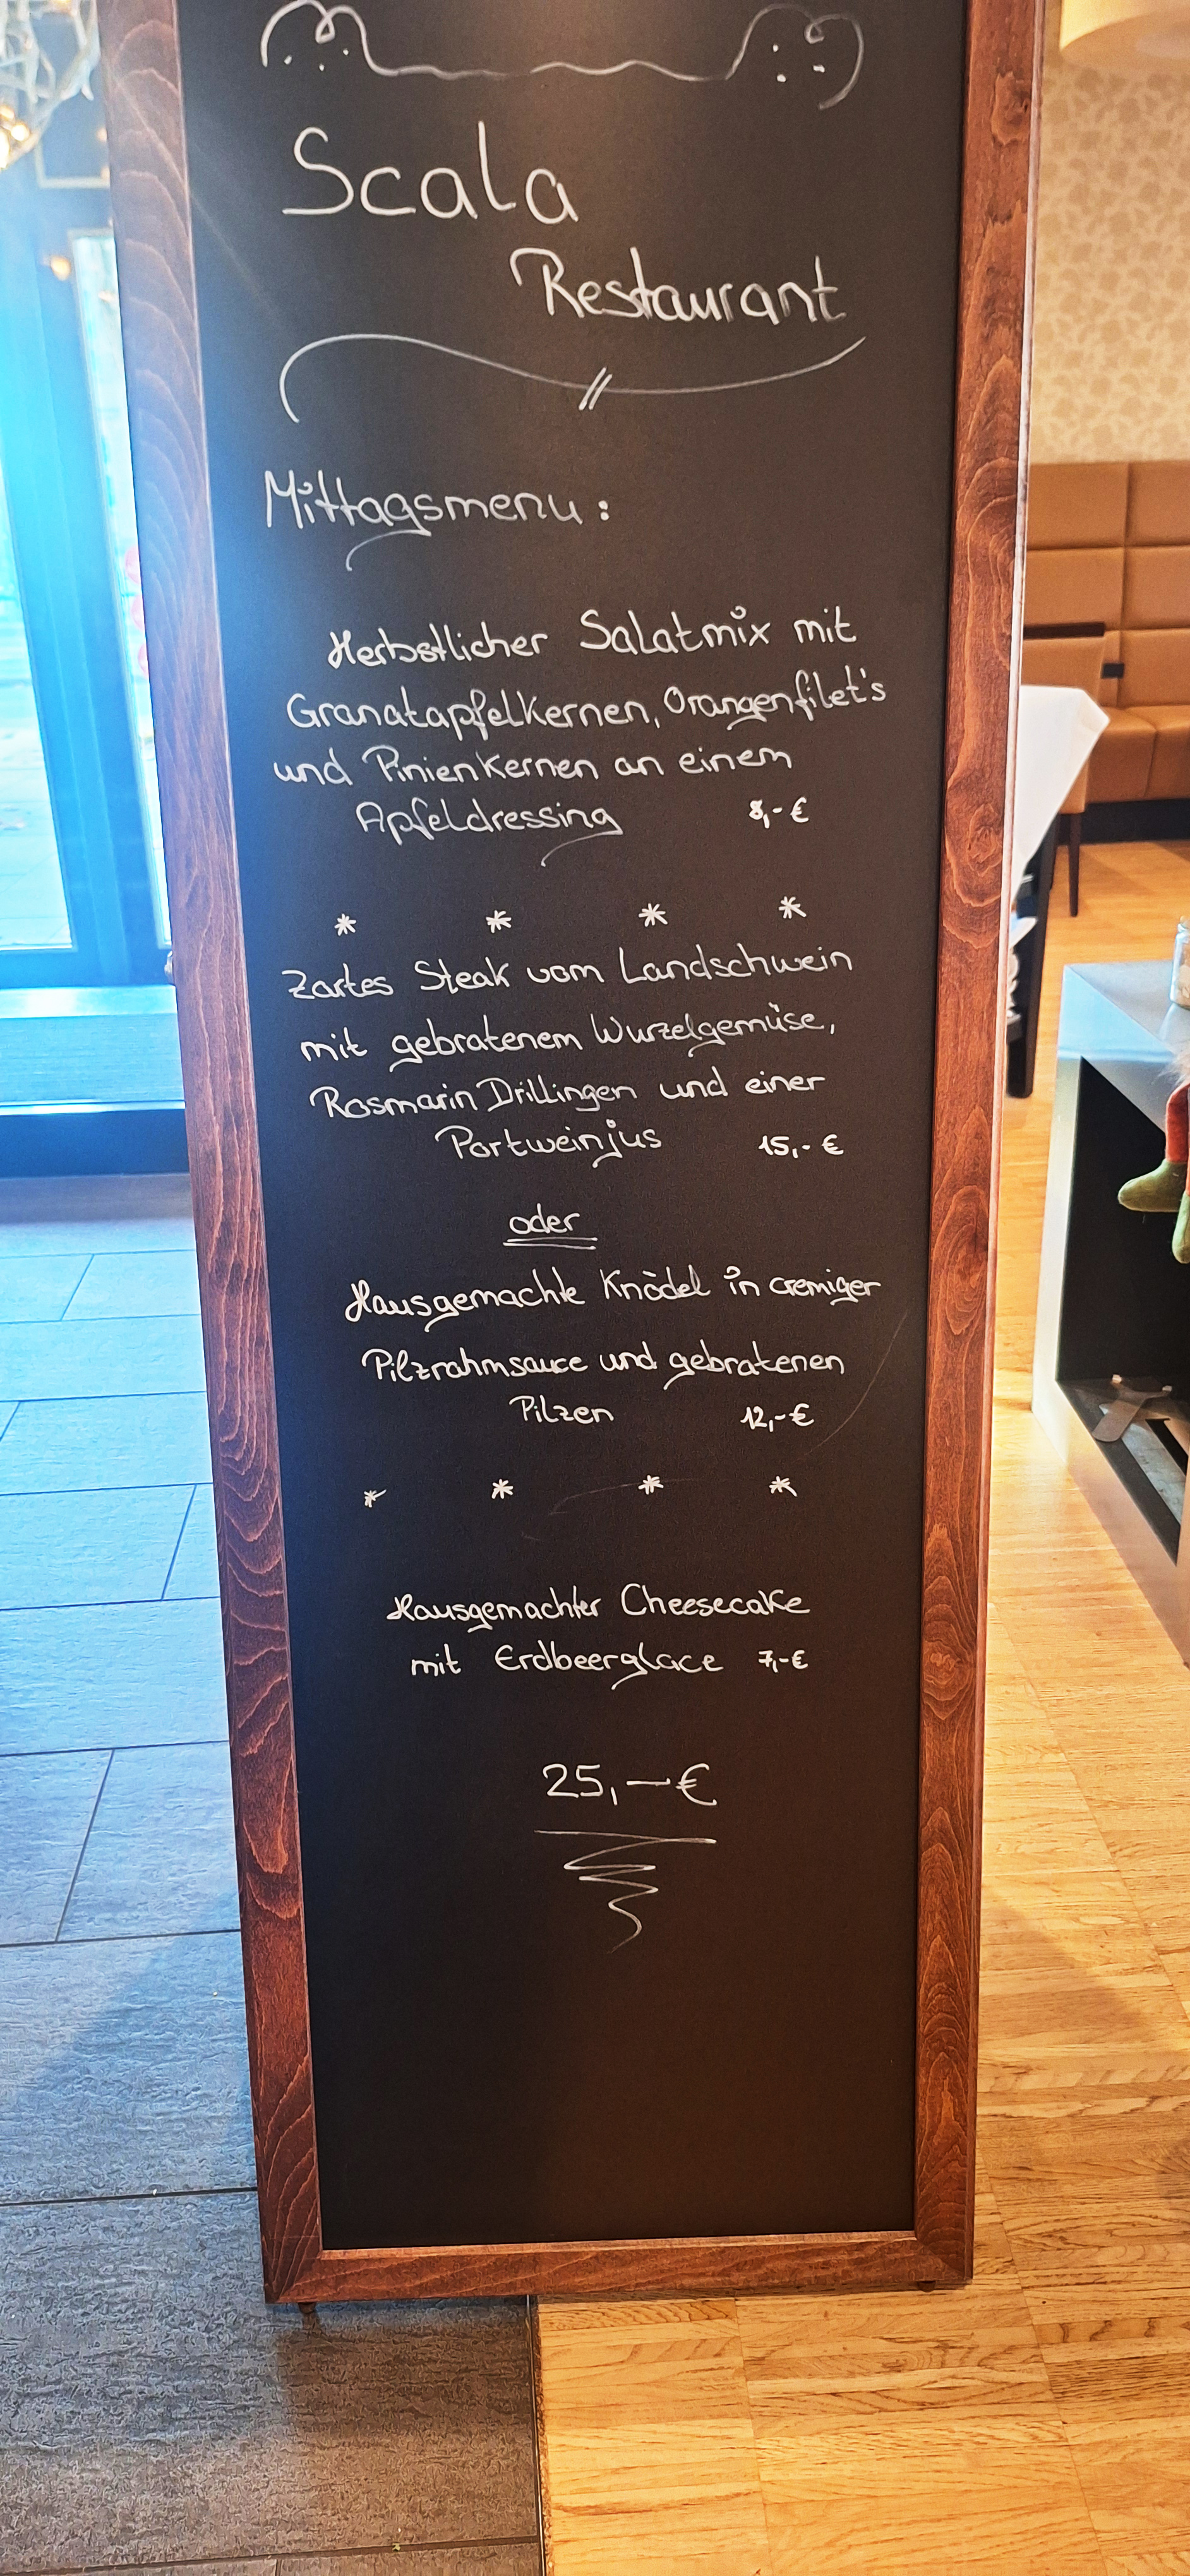 Scala
Restaurant
Mittagsmenu:
Herbstlicher Salatmix mit
Granatapfelkernen, Orangenfilet's
und Pinienkernen an einem
Apfeldressing 8,-€
* * * *
Zartes Steak vom Landschwein
mit gebratenem Wurzelgemüse,
Rosmarin Drillingen und einer
Portweinjus 15,-€
oder
Hausgemachte Knödel in cremiger
Pilzrahmsauce und gebratenen
Pilzen 12,-€
* * * *
Hausgemachter Cheesecake
mit Erdbeerglace 7,-€
25,-€